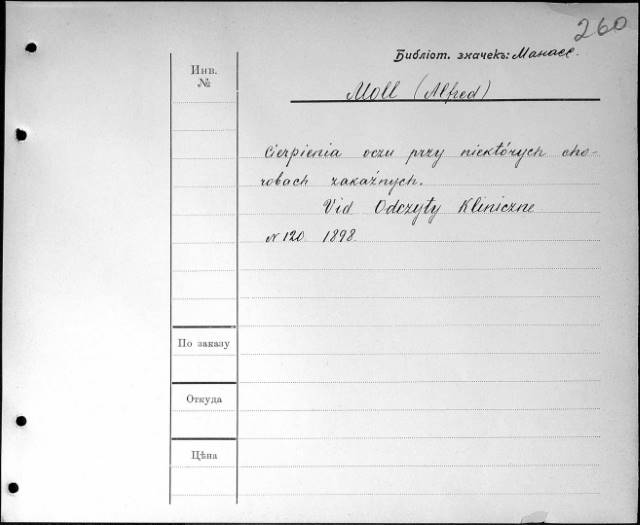 260
Библіот. значекъ: Манасс.
Инв.
№
Moll (Alfred)
Cierpienia oczu przy niektórych cho-
robach zakaźnych.
Vid Odczyty Kliniczne
N 120 1898.
По заказу
Откуда
Цѣна